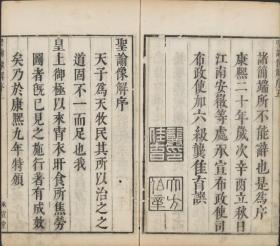 諸簡端所不能辭也是為序
康熙二十年歲次辛酉立秋日
江南安徽等處承宣布政使司
布政使加六級龔佳育譔
聖諭像解序
天子為天牧民其所以治之之
道固不一而足也我
皇上御極以來宵衣旰食所焦勞
圖者既已見之施行著有成效
矣乃於康熙九年特頒